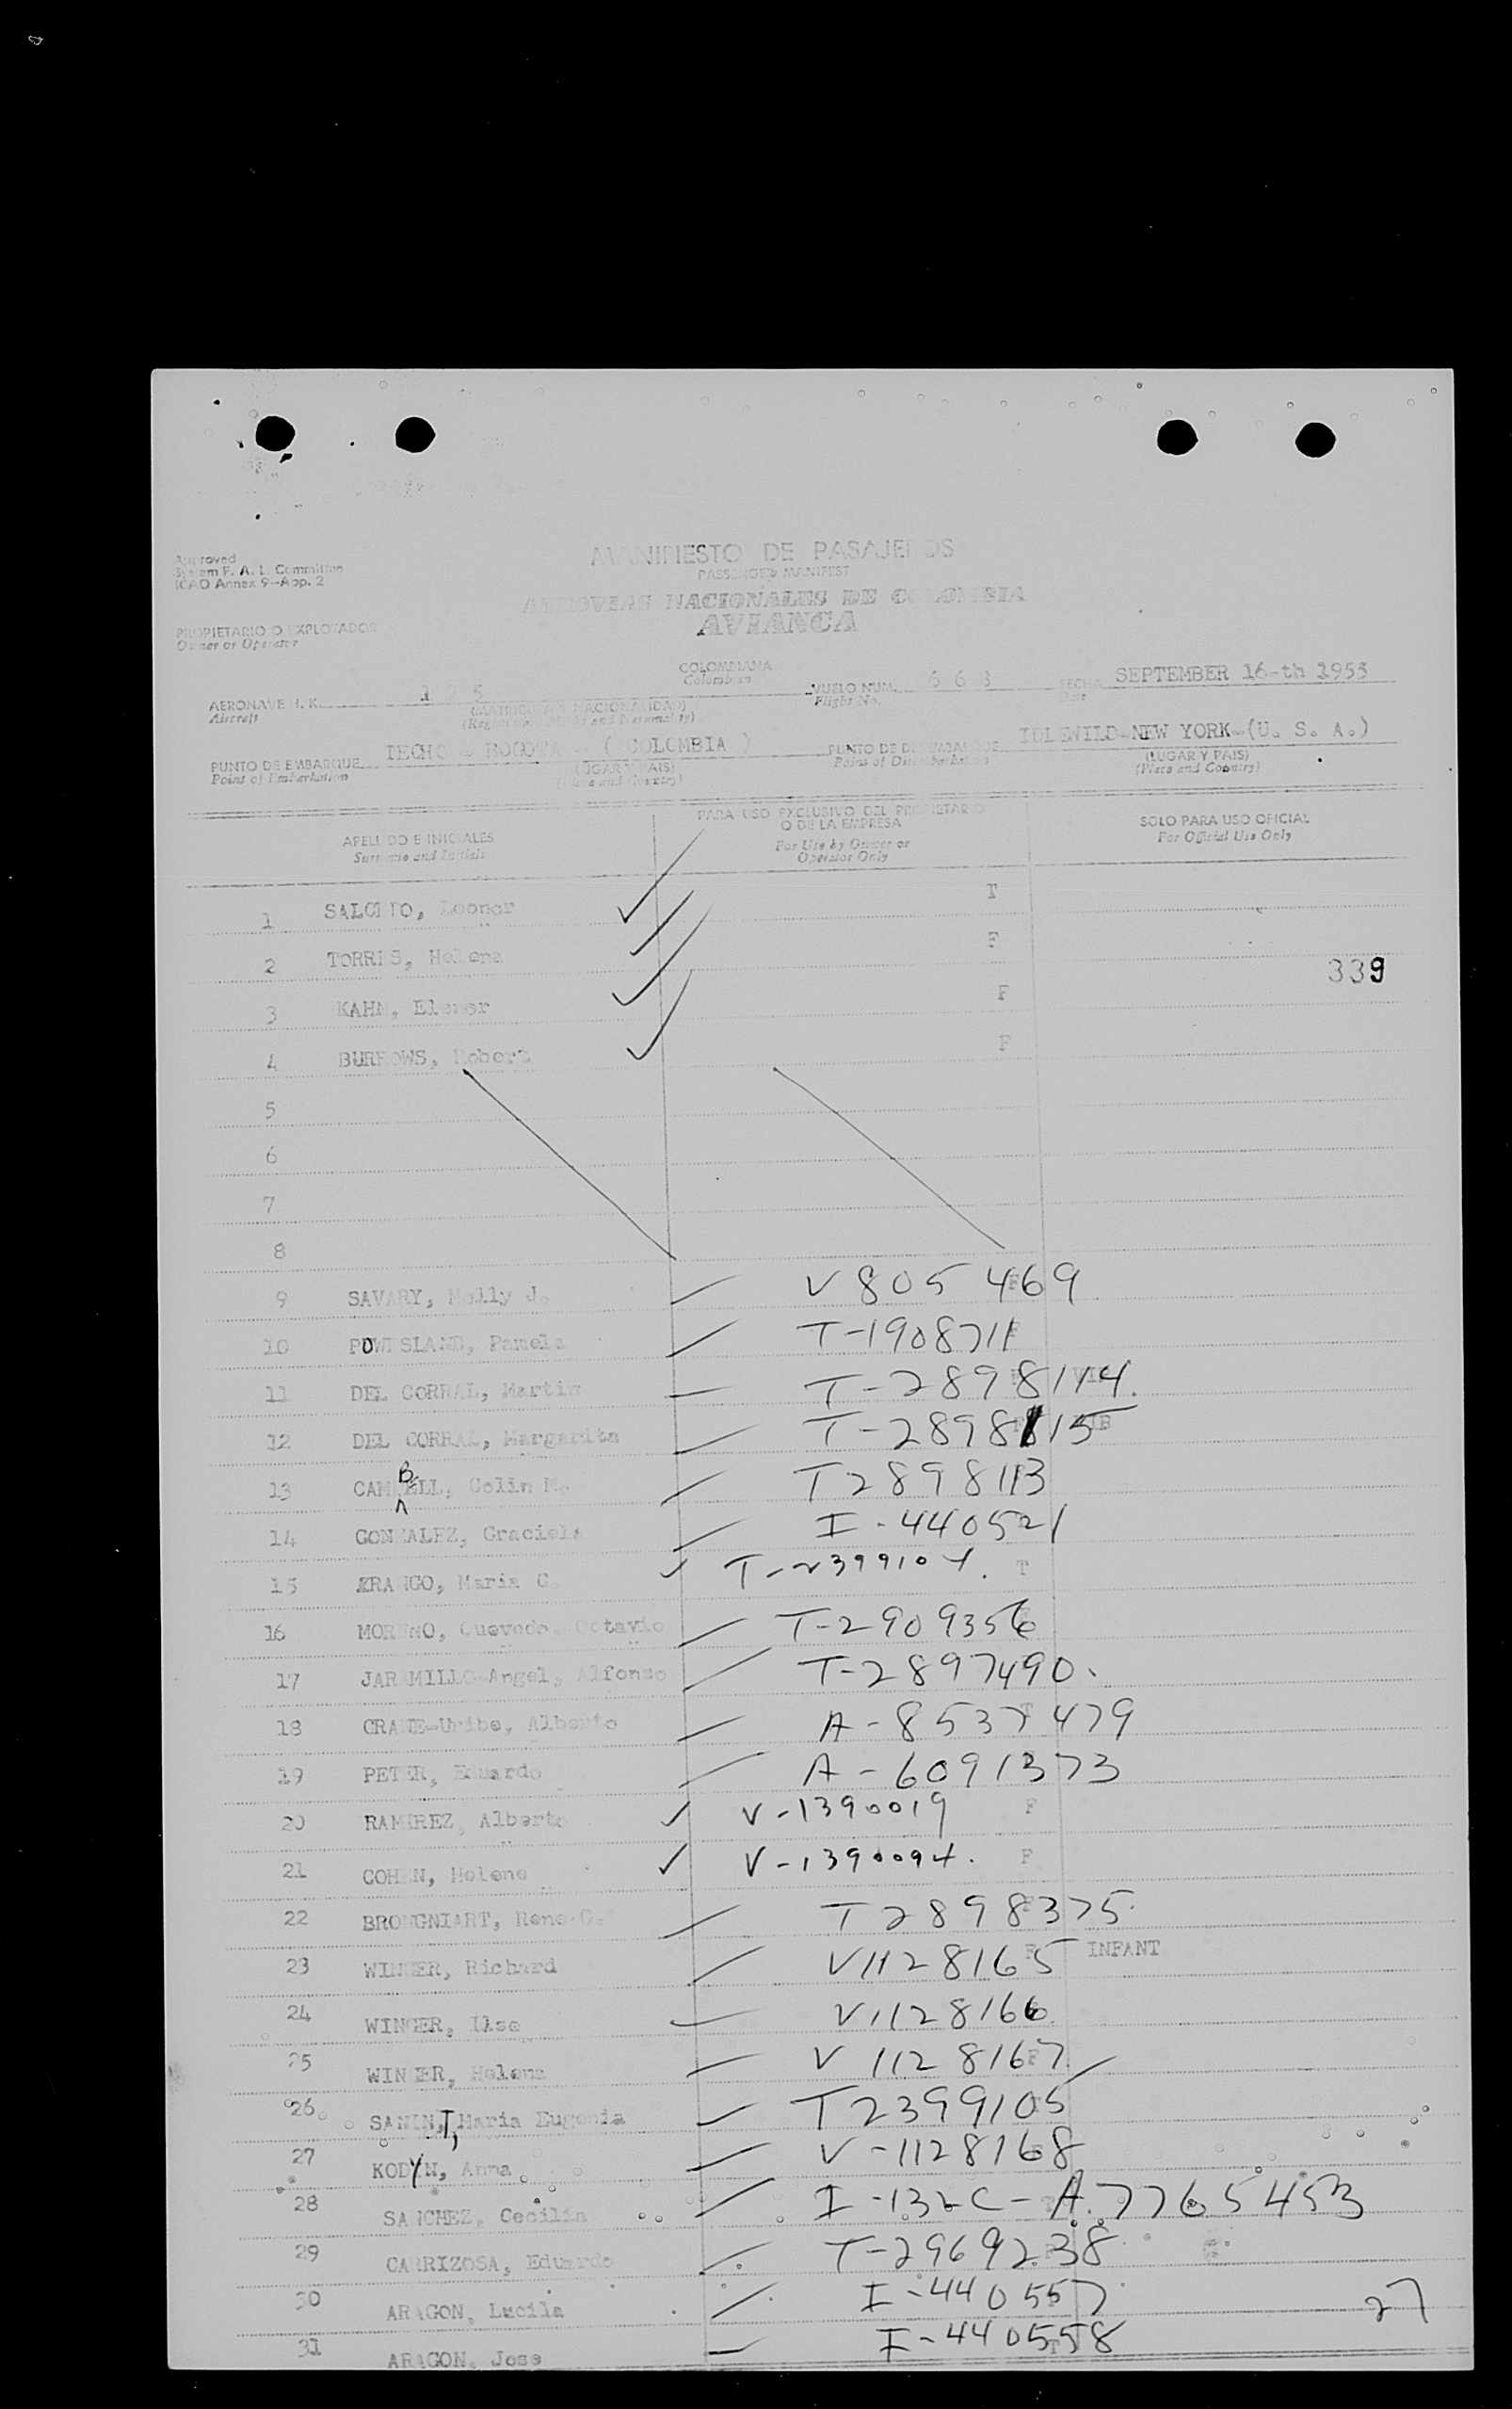 Approved
System F. A. L. Committee
ICAO Annex 9-App. 2
MANIFIESTO DE PASAJEROS
PASSENGER MANIFEST
AEROVIAS NACIONALES DE COLOMBIA
AVIANCA
PROPIETARIO O EXPLOTADOR
Owner or Operator
COLOMBIANA
Colombian
AERONAVE H. K. 1 7 5 VUELO NUM. 6 6 8 FECHA SEPTEMBER 16-th 1953
Aircraft (MATRICULA Y NACIONALIDAD) Flight No. Date
(Registration Marks and Nationality)
PUNTO DE EMBARQUE TECHO - BOGOTA - ( COLOMBIA ) PUNTO DE DESEMBARQUE IDLEWILD-NEW YORK-(U. S. A.)
Point of Embarkation (LUGAR Y PAIS) Point of Disembarkation (LUGAR Y PAIS)
(Place and Country) (Place and Country)
APELLIDO E INICIALES PARA USO EXCLUSIVO DEL PROPIETARIO O DE LA EMPRESA SOLO PARA USO OFICIAL
Surname and Initials For Use by Owner or Operator Only For Official Use Only
1 SALCEDO, Leonor T
2 TORRES, Helena F
339
3 KAHN, Elenor F
4 BURROWS, Robert F
5
6
7
8
9 SAVARY, Molly J. V 805 469
10 POWESLAND, Pamela T-1908711
11 DEL CORRAL, Martin T-2898114.
12 DEL CORRAL, Margarita T-2898115
13 CAMBELL, Colin M. T2898113
14 GONZALEZ, Graciela I-440521
15 ARANGO, Maria C. T-2399104. T
16 MORENO, Quevedo, Octavio T-2909356
17 JARAMILLO-Angel, Alfonso T-2897490.
18 CRANE-Uribe, Alberto A-8537479
19 PETER, Eduardo A-6091373
20 RAMIREZ, Alberto V-1390019 F
21 COHEN, Helene V-1390094. F
22 BRONGNIART, Rene C. T2898375.
23 WINGER, Richard V1128165 INFANT
24 WINGER, Ilse V1128166
25 WINGER, Helena V 1128167
26 SANINT, Maria Eugenia T2399105
27 KODYN, Anna V-1128168
28 SANCHEZ, Cecilia I-132C-A.7765453
29 CARRIZOSA, Eduardo T-2969238
30 ARAGON, Lucila I-440557
27
31 ARAGON, Jose I-440558